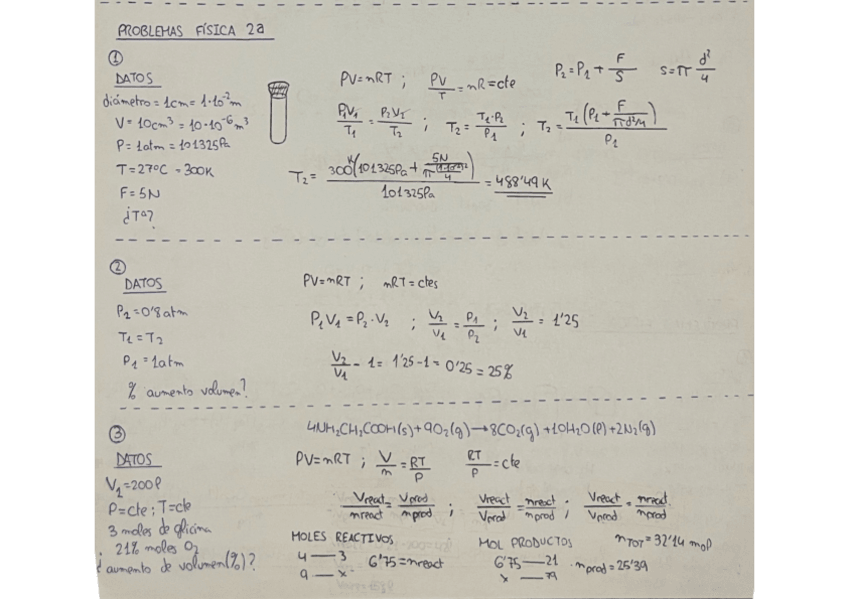 PROBLEMAS FÍSICA 2a
①
DATOS
diámetro = 1cm = 1·10⁻²m
V = 10cm³ = 10·10⁻⁶m³
P = 1atm = 101325Pa
T = 27ºC = 300K
F = 5N
¿Tª?
PV=nRT ; PV/T = nR = cte
P₂ = P₁ + F/S    S = π d²/4
P₁V₁/T₁ = P₂V₂/T₂ ; T₂ = T₁·P₂/P₁ ; T₂ = T₁(P₁ + F/πd²/4)/P₁
T₂ = 300K(101325Pa + 5N/π(1·10⁻²)²/4)/101325Pa = 488'49K
②
DATOS
P₂ = 0'8atm
T₁ = T₂
P₁ = 1atm
% aumento volumen?
PV=nRT ; nRT = ctes
P₁V₁ = P₂·V₂ ; V₂/V₁ = P₁/P₂ ; V₂/V₁ = 1'25
V₂/V₁ - 1 = 1'25 - 1 = 0'25 = 25%
③
DATOS
V₁ = 200l
P = cte ; T = cte
3 moles de glicina
21% moles O₂
¿aumento de volumen(%)?
4NH₂CH₂COOH(s) + 9O₂(g) → 8CO₂(g) + 10H₂O(l) + 2N₂(g)
PV=nRT ; V/n = RT/P    RT/P = cte
Vreact/nreact = Vprod/nprod ; Vreact/Vprod = nreact/nprod ; Vreact/Vprod = nreact/nprod
MOLES REACTIVOS
4 — 3
9 — x
6'75 = nreact
MOL PRODUCTOS
6'75 — 21
x — 79
nTOT = 32'14 mol
nprod = 25'39